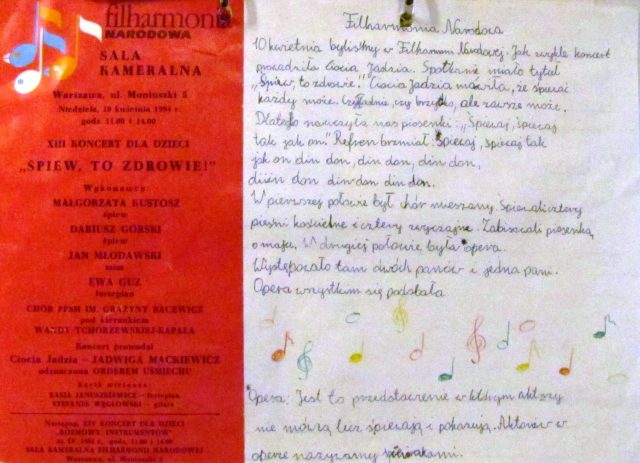 filharmonia
NARODOWA
SALA
KAMERALNA
Warszawa, ul. Moniuszki 5
Niedziela, 10 kwietnia 1994 r.
godz. 11.00 i 14.00
XIII KONCERT DLA DZIECI
"ŚPIEW, TO ZDROWIE!"
Wykonawcy
MAŁGORZATA KUSTOSZ
śpiew
DARIUSZ GÓRSKI
śpiew
JAN MŁODAWSKI
mim
EWA GUZ
fortepian
CHÓR PPSM IM. GRAŻYNY BACEWICZ
pod kierunkiem
WANDY TCHORZEWSKIEJ-KAPAŁA
Koncert prowadzi
Ciocia Jadzia – JADWIGA MACKIEWICZ
odznaczona ORDEREM UŚMIECHU
Kącik wirtuoza
KASIA JANUSZKIEWICZ – fortepian
STEFANEK WĘGŁOWSKI – gitara
Następny, XIV KONCERT DLA DZIECI
"ROZMOWY INSTRUMENTÓW"
IV 1994 r., godz. 11.00 i 14.00
SALA KAMERALNA FILHARMONII NARODOWEJ
Warszawa, ul. Moniuszki 5
Filharmonia Narodowa
10 kwietnia byliśmy w Filharmonii Narodowej. Jak zwykle koncert
prowadziła Ciocia Jadzia. Spotkanie miało tytuł
"Śpiew, to zdrowie." Ciocia Jadzia mówiła, że śpiewać
każdy może. Czy ładnie, czy brzydko, ale zawsze może.
Dlatego nauczyła nas piosenki: "Śpiewaj, śpiewaj
tak jak on" Refren brzmiał: Śpiewaj, śpiewaj tak
jak on din don, din don, diin don,
diiin don din don din don.
W pierwszej połowie był chór mieszany. Śpiewali cztery
pieśni kościelne i cztery zwyczajne. Zaśpiewali piosenkę
o maju. W drugiej połowie była opera.
Występowało tam dwóch panów i jedna pani.
Opera wszystkim się podobała
Opera: Jest to przedstawienie w którym aktorzy
nie mówią lecz śpiewają i pokazują. Aktorów w
operze nazywamy śpiewakami.